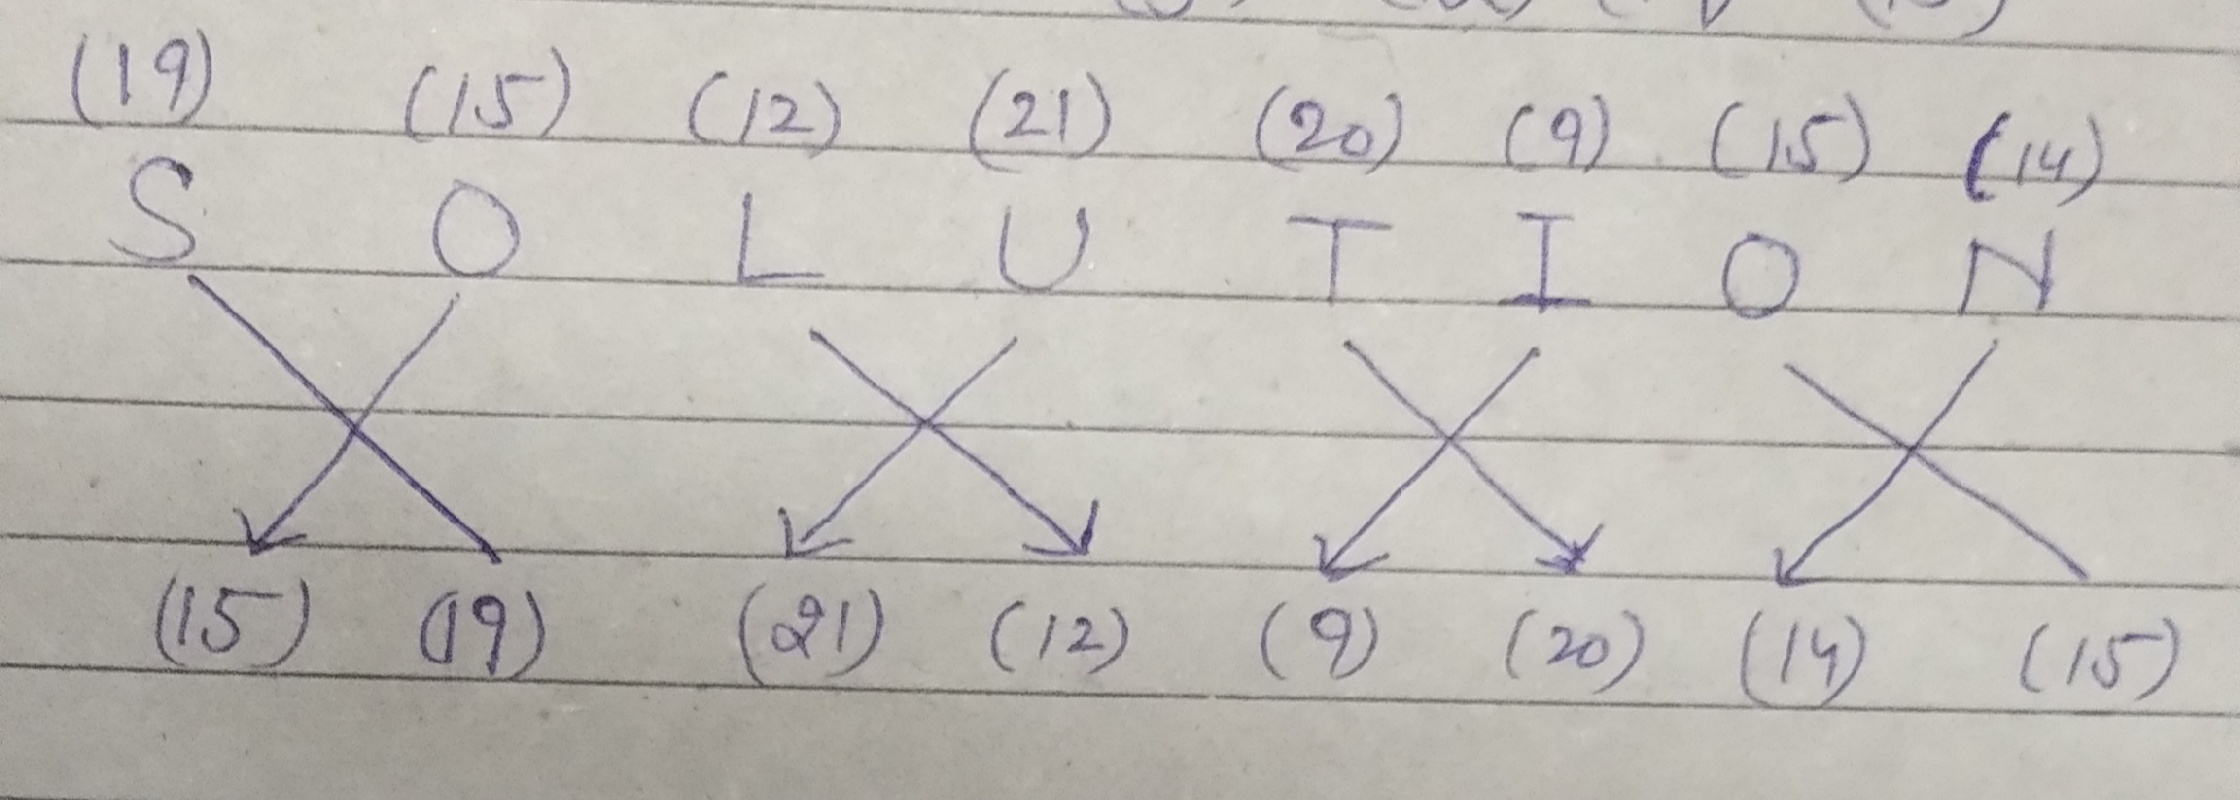 (19) (15) (12) (21) (20) (9) (15) (14)
S O L U T I O N
(15) (19) (21) (12) (9) (20) (14) (15)